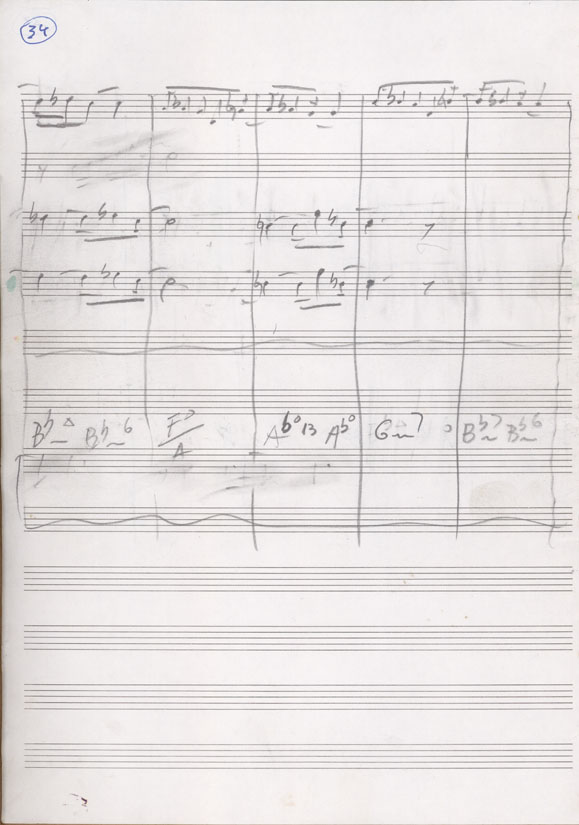 34
B♭~△ B♭~6 F7/A A♭°13 A♭° G~7 B♭7~ B♭6~